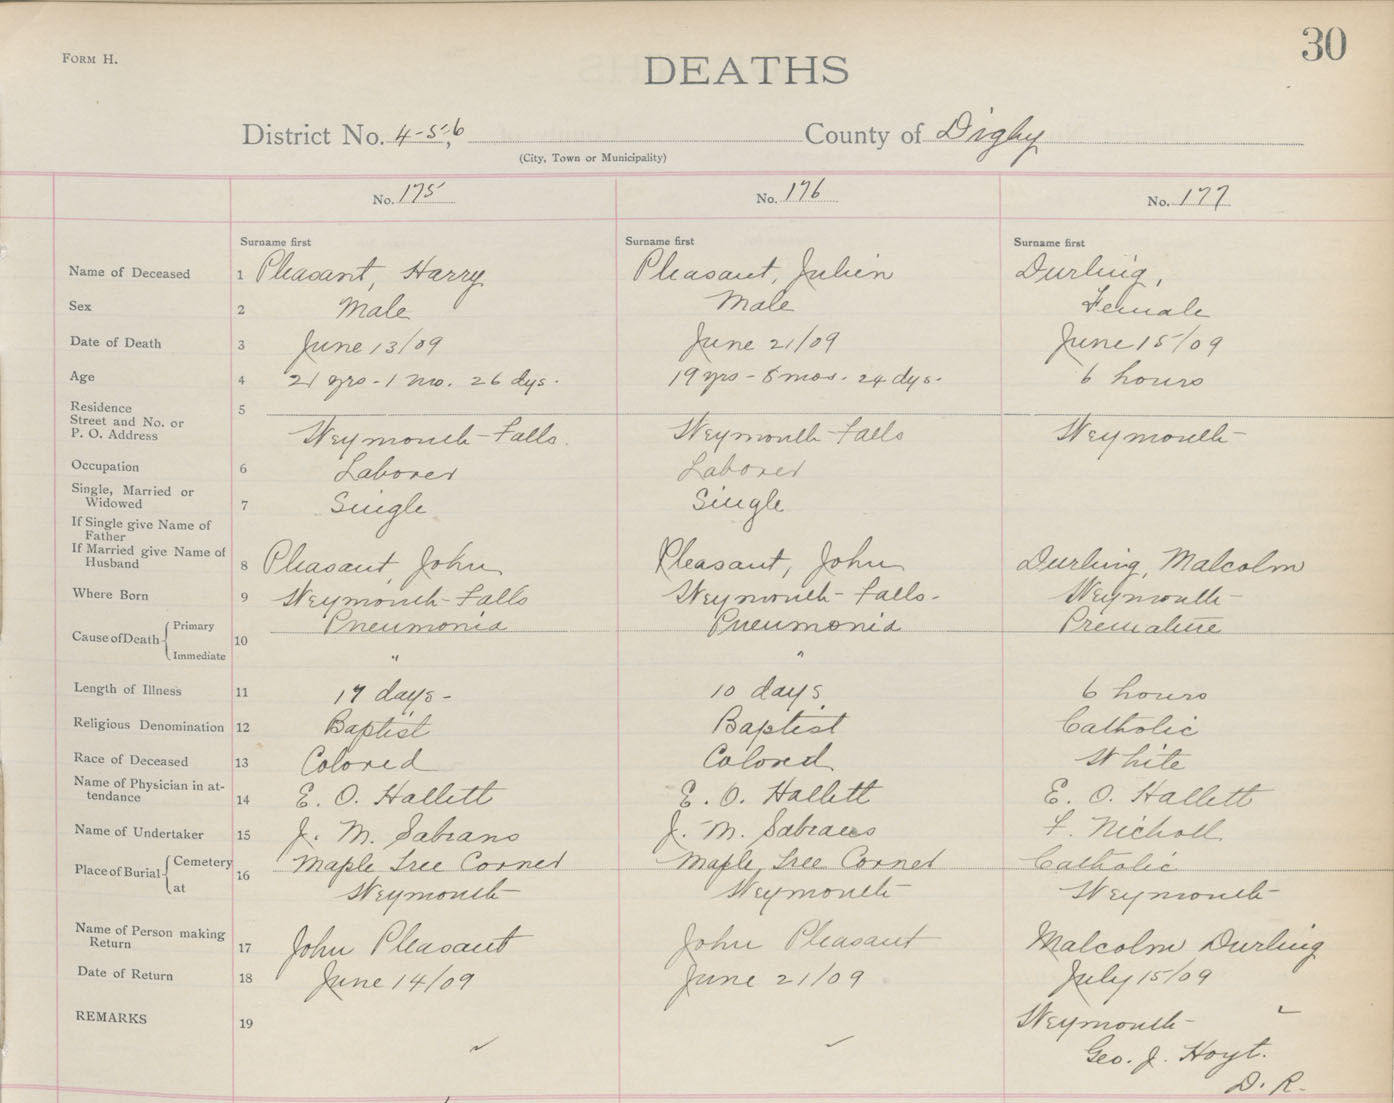 30
FORM H.
DEATHS
District No. 4-5-6 County of Digby
(City, Town or Municipality)
No. 175 No. 176 No. 177
Surname first Surname first Surname first
Name of Deceased 1 Pleasant, Harry Pleasant, Julien Durling,
Sex 2 Male Male Female
Date of Death 3 June 13/09 June 21/09 June 15/09
Age 4 21 yrs - 1 mo. 26 dys. 19 yrs - 8 mos. 24 dys. 6 hours
Residence 5
Street and No. or
P. O. Address Weymouth-Falls. Weymouth-Falls Weymouth-
Occupation 6 Laborer Laborer
Single, Married or
Widowed 7 Single Single
If Single give Name of
Father
If Married give Name of
Husband 8 Pleasant, John Pleasant, John Durling, Malcolm
Where Born 9 Weymouth-Falls Weymouth-Falls- Weymouth-
Cause of Death Primary 10 Pneumonia Pneumonia Premature
Immediate " "
Length of Illness 11 17 days- 10 days 6 hours
Religious Denomination 12 Baptist Baptist Catholic
Race of Deceased 13 Colored Colored White
Name of Physician in at-
tendance 14 E. O. Hallett E. O. Hallett E. O. Hallett
Name of Undertaker 15 J. M. Sabeans J. M. Sabeans F. Nicholl
Place of Burial Cemetery 16 Maple Tree Corner Maple Tree Corner Catholic
at Weymouth Weymouth Weymouth-
Name of Person making
Return 17 John Pleasant John Pleasant Malcolm Durling
Date of Return 18 June 14/09 June 21/09 July 15/09
REMARKS 19 Weymouth-
Geo. J. Hoyt.
D. R.